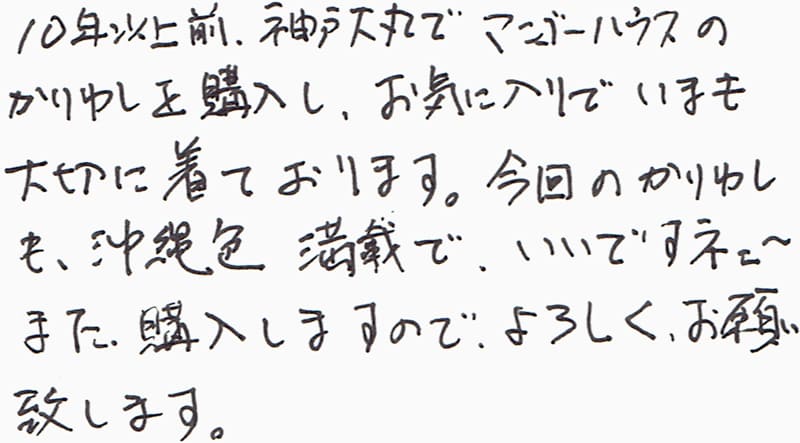 10年以上前、神戸大丸で マンゴーハウスの
かりゆしを購入し、お気に入りで いまも
大切に着ております。今回のかりゆし
も、沖縄色 満載で、いいですネェ〜
また、購入しますので、よろしく、お願い
致します。